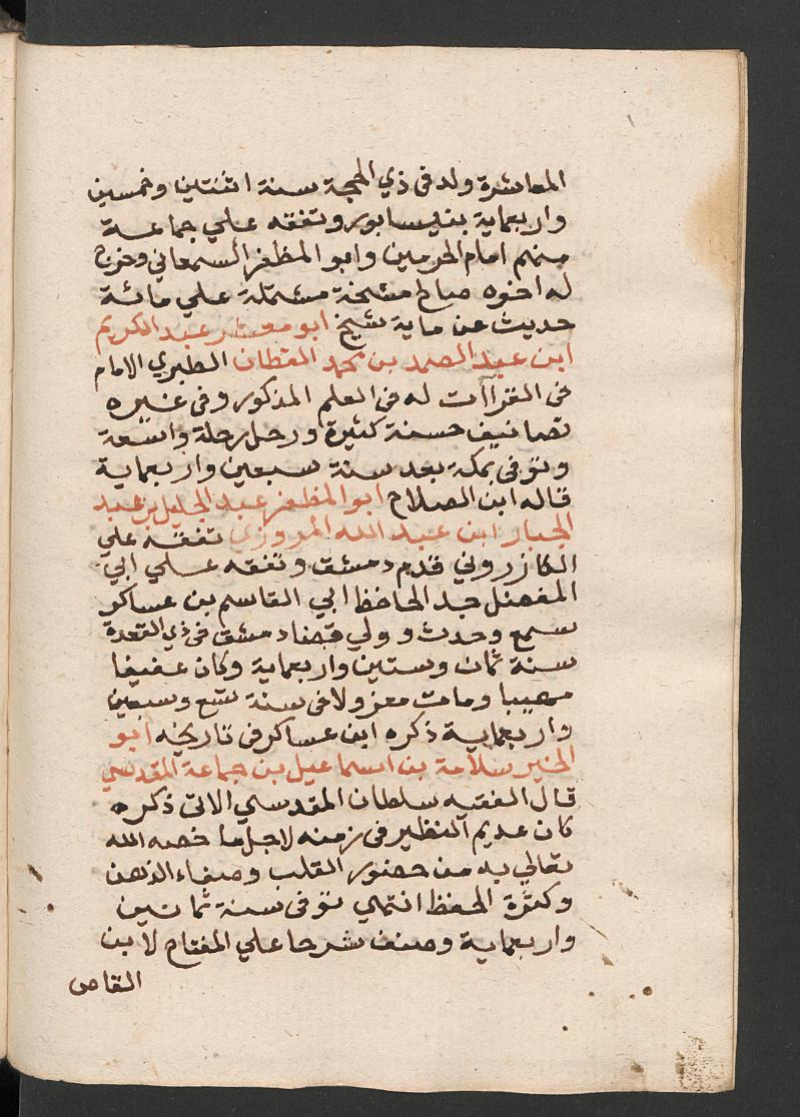 المعاشرة ولد فى ذي الحجة سنة اثنتين وخمسين
واربعماية بنيسابور وتفقه علي جماعة
منهم امام الحرمين وابو المظفر السمعاني وخرج
له اخوه صالح مشيخة مشتملة علي مائة
حديث عن ماية شيخ ابو معشر عبد الكريم
ابن عبد الصمد بن محمد القطان الطبري الامام
فى القراآت له فى العلم المذكور وفى غيره
تصانيف حسنة كثيرة ورحل رحلة واسعة
وتوفى بمكة بعد سنة سبعين واربعماية
قاله ابن الصلاح ابو المظفر عبد الجليل بن عبد
الجبار ابن عبد الله المروزي تفقه علي
الكازروني قدم دمشق وتفقه علي ابي
المفضل جد الحافظ ابي القاسم بن عساكر
سمع وحدث وولي قضا دمشق فى ذي القعدة
سنة ثمان وستين واربعماية وكان عفيفا
مهيبا ومات معزولا فى سنة تسع وسبعين
واربعماية ذكره ابن عساكر فى تاريخه ابو
الخير سلامة بن اسماعيل بن جماعة المقدسي
قال الفقيه سلطان المقدسي الاتى ذكره
كان عديم النظير فى زمنه لاجل ما خصه الله
تعالي به من حضور القلب وصفاء الذهن
وكثرة الحفظ انتهي توفى سنة ثمانين
واربعماية وصنف شرحا علي المفتاح لابن
القاص